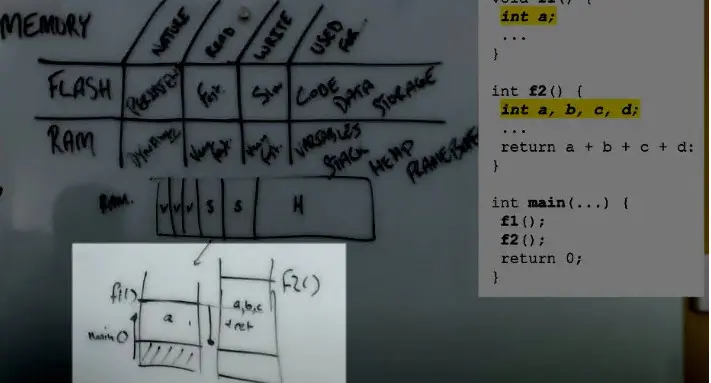 MEMORY
NATURE READ WRITE USED FOR
FLASH PERSISTENT Fast. Slow CODE DATA STORAGE
RAM Very Fast. Very Fst. VARIABLES STACK HEAP
RAM. V V V S S H
f1()
a
main()
f2()
a,b,c
+ret
int a;
...
}
int f2() {
int a, b, c, d;
...
return a + b + c + d:
}
int main(...) {
f1();
f2();
return 0;
}